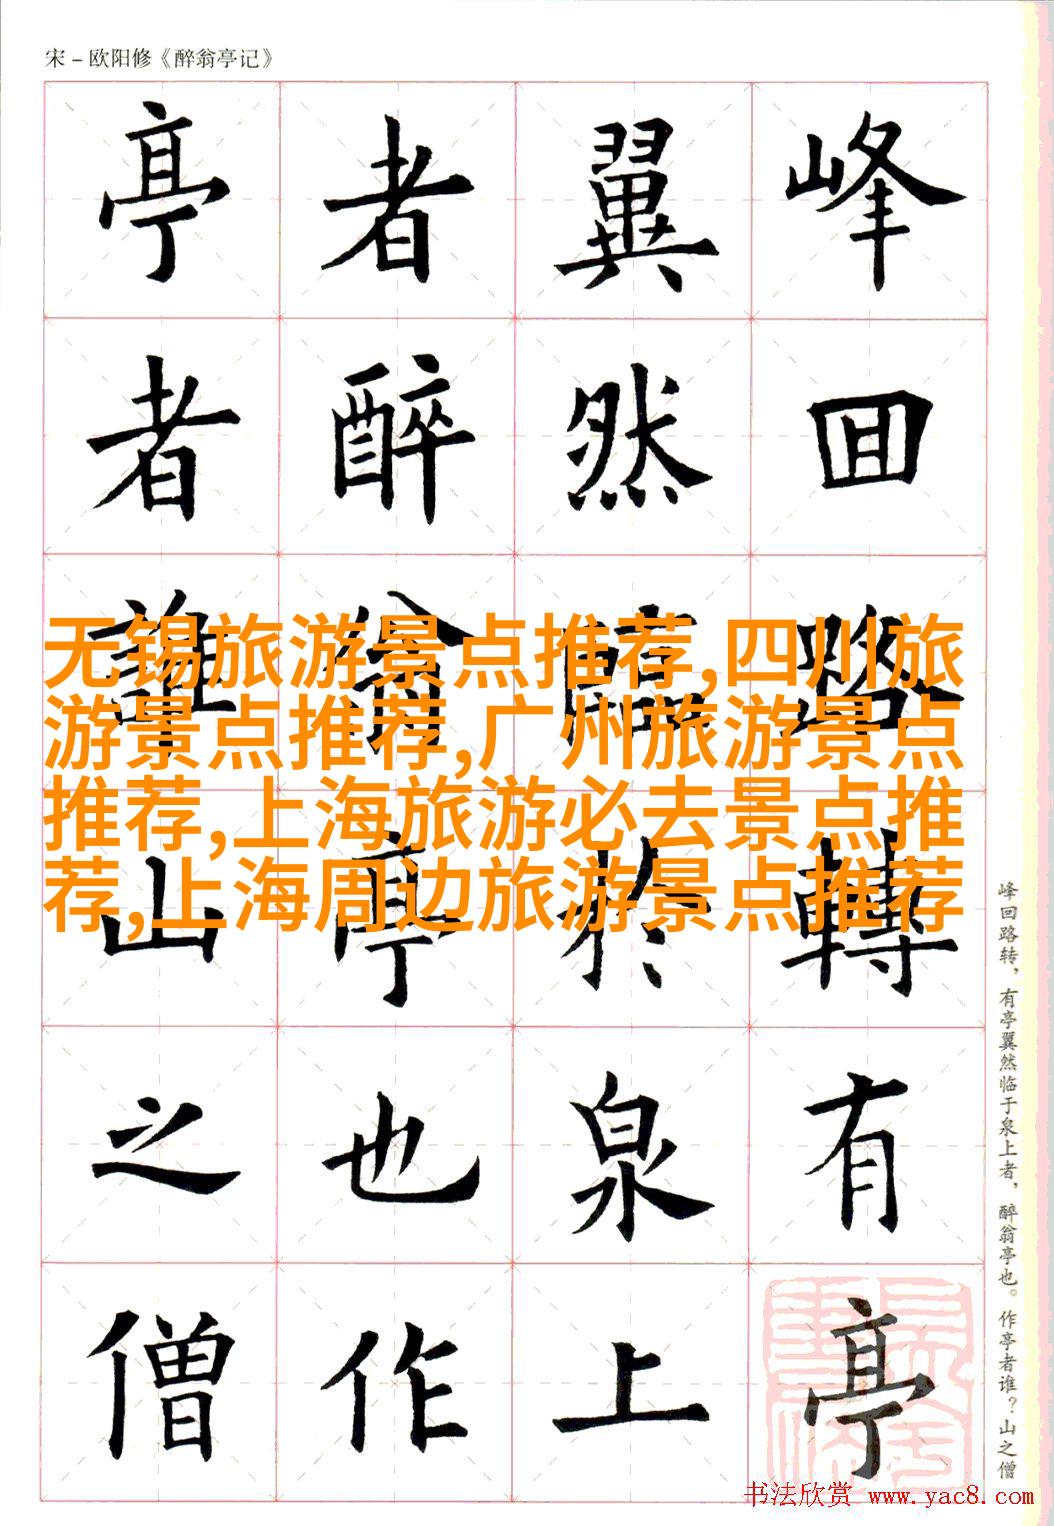 宋－欧阳修《醉翁亭记》
峰回路轉有亭
翼然臨於泉上
者醉翁亭也作
亭者誰山之僧
无锡旅游景点推荐,四川旅
游景点推荐,广州旅游景点
推荐,上海旅游必去景点推
荐,上海周边旅游景点推荐
峰回路转，有亭翼然临于泉上者，醉翁亭也。作亭者谁？山之僧
书法欣赏 www.yac8.com